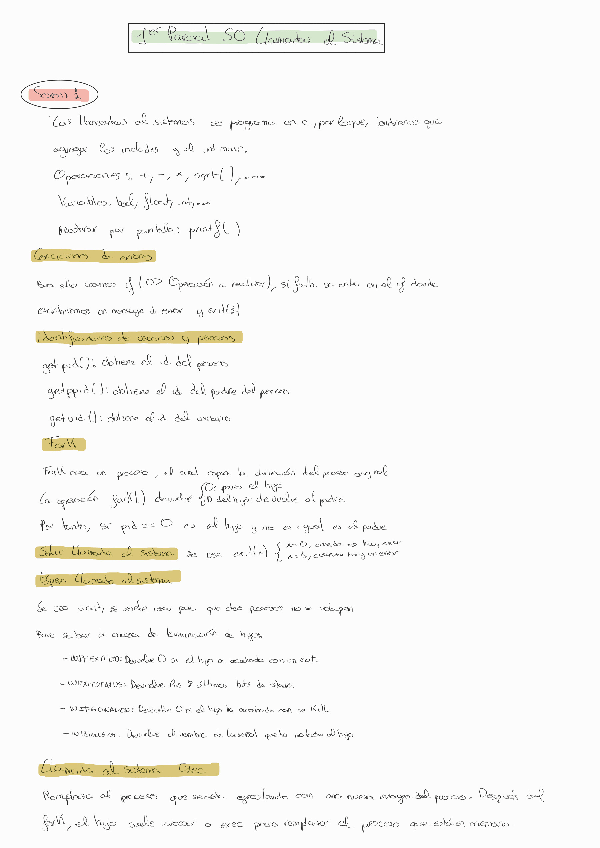 1er Parcial SO Llamadas al Sistema
Sesión 1
Las llamadas al sistemas se programa en c, por lo que, tendremos que
agregar los includes y el int main.
Operaciones: +, -, *, sqrt(), ....
Variables: bool, float, int, ...
Mostrar por pantalla: printf( )
de errores
Para ello usamos if (0> Operación a realizar), si falla se entra en el if donde
escribiremos un mensaje de error y exit(1)
Identificadores de usuarios y procesos
getpid(): obtiene el id del proceso
getppid(): obtiene el id del padre del proceso
getuid(): obtiene el id del usuario
Fork
Fork crea un proceso, el cual copia la dirección del proceso original
La operación fork() devuelve { 0: para el hijo
ID del hijo devuelve al padre
Por tanto, si pid == 0 es el hijo y no es igual es el padre
llamada al sistema se usa exit(n) { n=0, cuando no hay error
n=1, cuando hay un error
llamada al sistema
Se usa wait, se suele usar para que dos procesos no se
Para saber la causa de terminación de hijos
- WIFEXITED: Devuelve 0 si el hijo a acabado con un exit.
- WEXITSTATUS: Devuelve los 8 últimos bits de
- WIFSIGNALED: Devuelve 0 si el hijo ha acabado con un Kill.
- WTERMSIG: Devuelve el número de la señal que ha matado al hijo.
al sistema Exec
Remplaza al proceso que se está ejecutando con una nueva imagen del proceso. Después del
fork, el hijo suele llamar a exec para remplazar el proceso que está en memoria